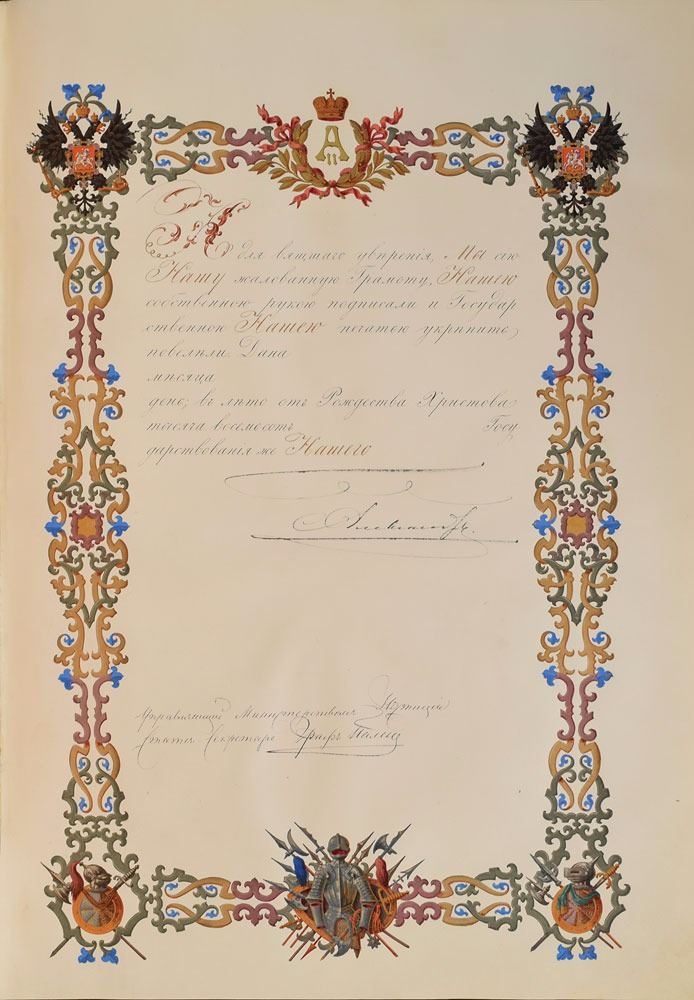 А
II
И для вящшаго увѣренія, Мы сію
Нашу жалованную Грамоту, Нашею
собственною рукою подписали и Государ
ственною Нашею печатью укрѣпить,
повелѣли. Дана
мѣсяца
день; въ лѣто отъ Рождества Христова
тысяча восемсотъ Госу
дарствованія же Нашего
Александръ.
Управляющій Министерствомъ Юстиціи
Статсъ Секретарь Графъ Паленъ